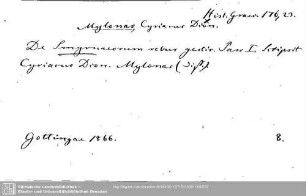 Hist. Graec. 176, 23.
Mylonas, Cyriacus Dion.
De Smyrnaeorum rebus gestis. Pars I. Scripsit
Cyriacus Dion. Mylonas (Diss.)
Gottingae 1866. 8.
Sächsische Landesbibliothek -
Staats- und Universitätsbibliothek Dresden